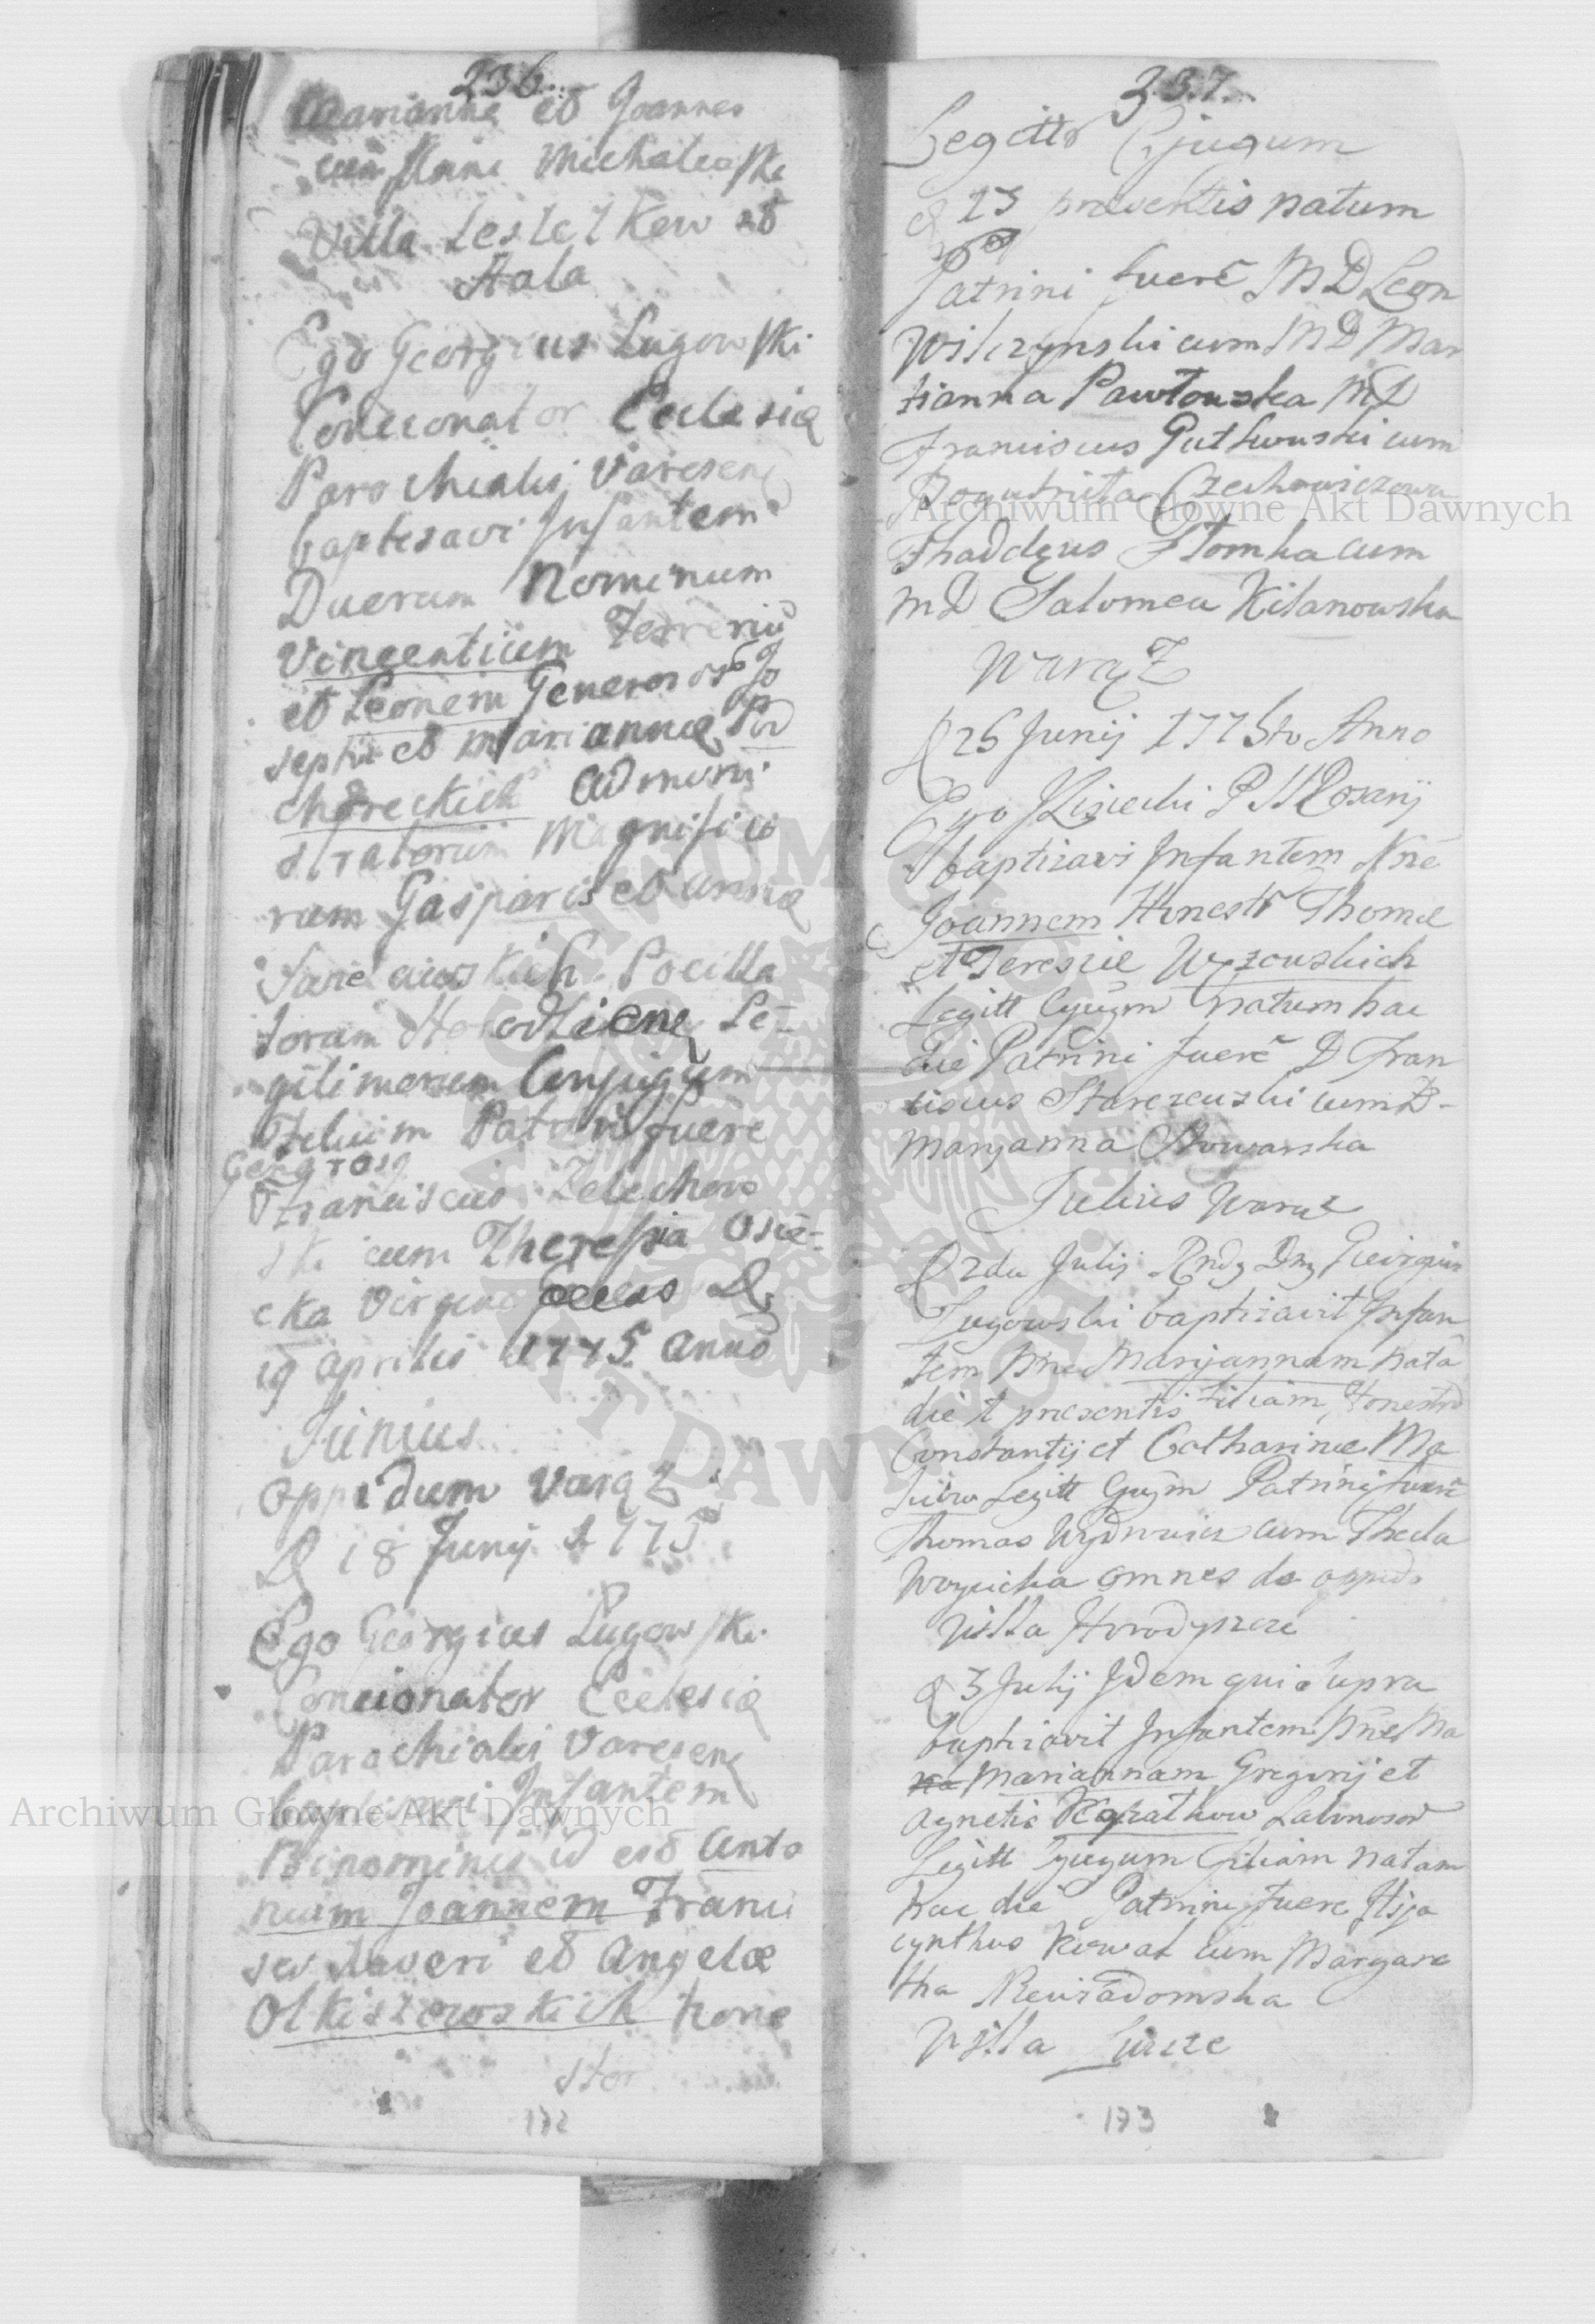 236
Marianna et Joannes
cum Anna Michalewski
Villa Leslelkew et
Hala
Ego Georgius Lugowski
Concionator Ecclesiæ
Parochialis Varesens
baptisavi Infantem
Duorum Nominum
Vincentium Ferreriu
et Leonem Generosors Jo
sephi et Mariannæ Pod
choreckich admini
stratorum Magnifico
rum Gasparis et Annæ
Pocilla
torum Horodliens Le-
gitimorum Conjugum
Filium Patrini fuere
Generosq
Franciscus Zelechow
ski cum Theressia Osie-
cka Virgine D
19 Aprilis 1775 Anno
Junius
Oppidum Varaz
D 18 Junij 1775
Ego Georgius Lugowski
Concionator Ecclesiæ
Parochialis Varesens
baptisavi Infantem
Binominis id est Anto
nium Joannem Franci
sci Xaveri et Angelæ
Olkiszewskich hone
stor
172
237
Legittr Cjugum
d 23 præsentis natum
Patrini fuere MD Leon
Wilczynski cum MD Mar
iianna Pawłowska MD
Franciscus Gutkowski cum
Bogumiła Czechowiczowa
Thaddeus Słomka cum
MD Salomea Kilanowska
Waręż
D 26 Junij 1775to Anno
Ego JLisiecki P SS Rosarij
baptizavi Infantem Nne
Joannem Honestr Thomæ
et Teresiæ Wrzowskich
Legitt Cjugm natum hac
die Patrini fuere D Fran
ciscus Starczewski cum D-
Maryanna Stowarska
Julius Waręż
D 2da Julij Rndg Dng Georgius
Lugowski baptizavit Infan
tem Nne Maryannam nata
die 1 præsentis Filiam Honestrd
Constantij et Catharinæ Ma
Legitt Cjugm Patrini fuere
Thomas cum Thecla
Woycicka omnes de oppido
Villa Horodyszcze
D 3 Julij Idem qui supra
baptizavit Infantem Nne Ma
Mariannam Gregorij et
Agnetis Laboriosor
Legitt Cjugum Filiam natam
hac die Patrini fuere Hija
cynthus Kowal cum Margare
tha Niewiadomska
Villa Liwcze
173
Archiwum Główne Akt Dawnych
Archiwum Główne Akt Dawnych
ARCHIWUM GŁÓWNE AKT DAWNYCH